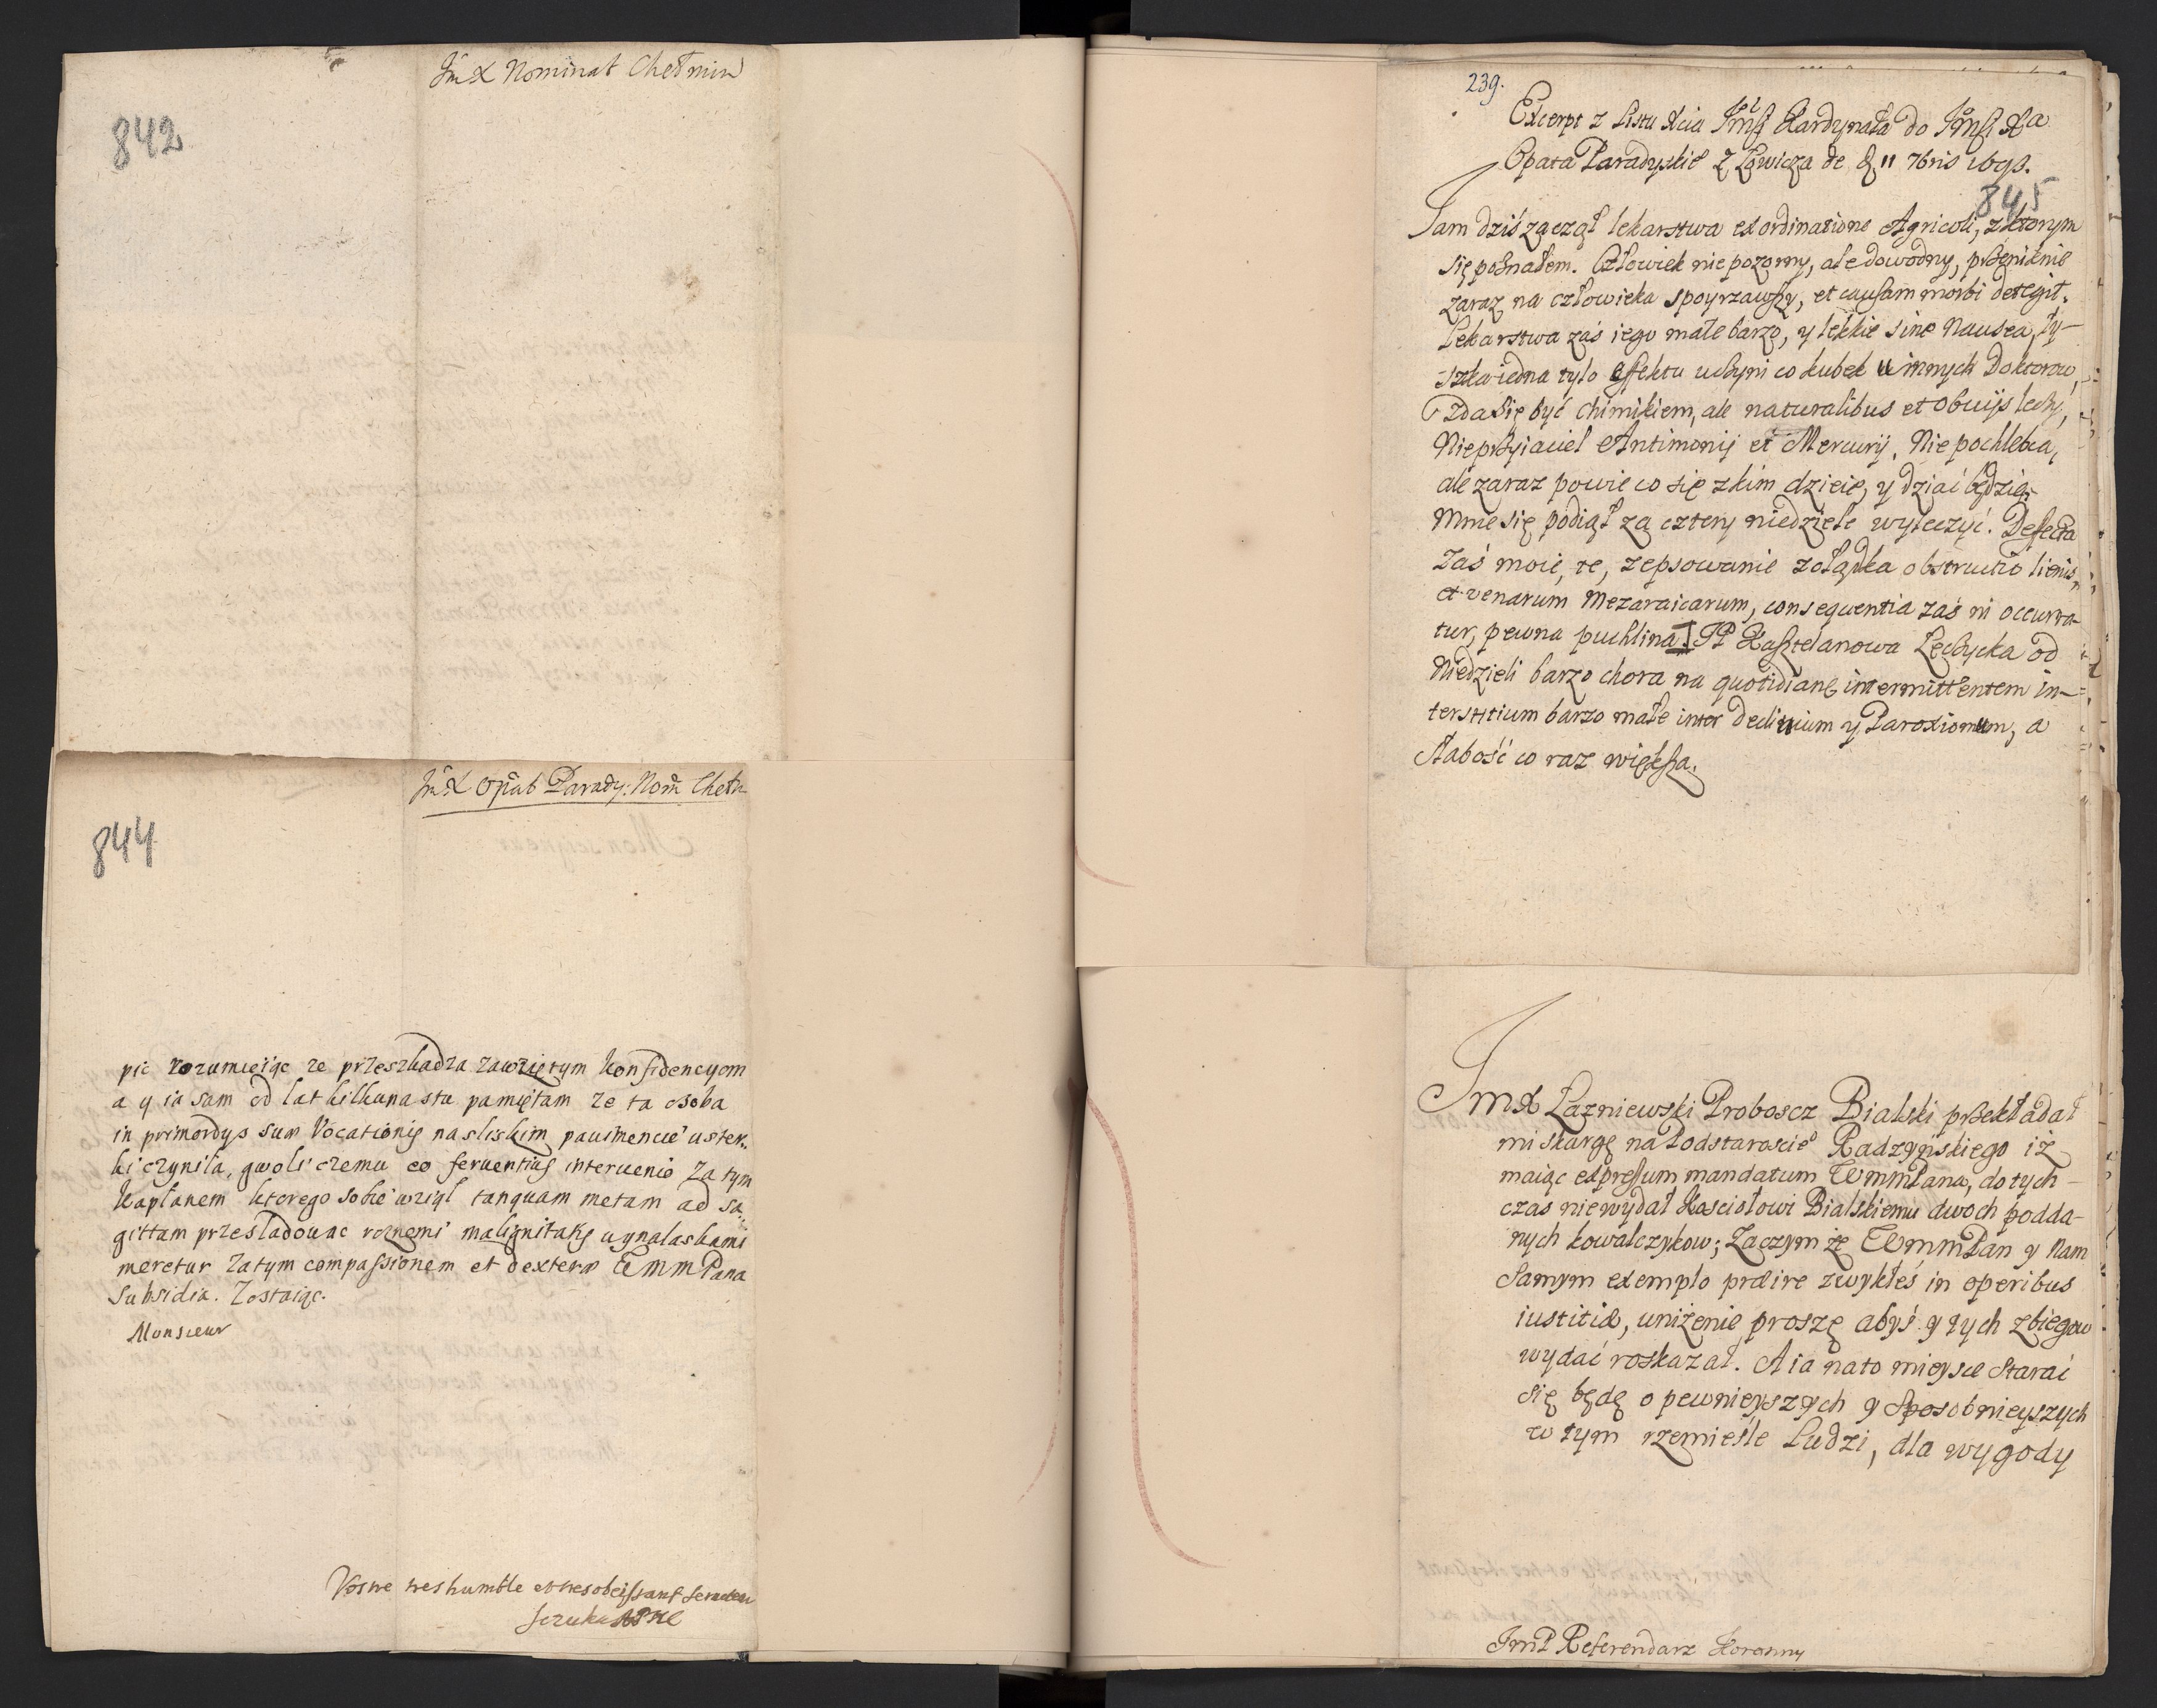 Jm X Nominat Chełmin
842
Jm X Opat Parady: Nom Chełm
844
pic rozumieiąc ze przeszkadza zawziętym konfidencyom
a y ia sam od lat kilkunastu pamiętam ze ta osoba
in primordys suæ Vocationis na sliskim pauimencie uster„
ki czynila, gwoli czemu eo feruentius interuenio za tym
kapłanem ktorego sobie wziął tanquam metam ad sa„
gittam przesladowac roznemi malignitatis wynalaskami
meretur zatym compassionem et dexteræ WmmPana
Subsidia. Zostaiąc.
Monsieur
Vostre treshumble et tresobeissant seruiteur
Szczuka
239.
Excerpt z Listu Xcia Jmści Kardynała do Jmści Xa
Opata Paradyskie z Łowicza de d 11 7bris 1698.
845
Jam dziś zaczął lekarstwa ex ordinatione Agricoli, z ktorym
się poznałem. Człowiek nie pozorny, ale dowodny, przeniknie
zaraz na człowieka spoyrzawszy, et causam morbi detegit.
Lekarstwa zaś iego małe barzo, y lekkie sine nausea, ły-
szka iedna tylo effektu uczyni co kubek u innych Doktorow,
Zda się być chimikiem, ale naturalibus et obuijs leczy,
Nieprzyiaciel Antimonij et Mercurij. Nie pochlebca,
ale zaraz powie co się z kim dzieie, y dziać będzie.
Mnie się podiął za cztery niedziele wyleczyć. Defecta
Zaś moie, te, zepsowanie zołądka obstructio lienis,
et venarum mezaraicarum, consequentia zaś ni occurra-
tur, pewna puchlina. JP Kasztelanowa Łęczycka od
Niedzieli barzo chora na quotidianę intermittentem in-
terstitium barzo małe inter declinium y Paroxismum, a
słabość co raz większa.
JmX Łazniewski Proboscz Bialski przekładał
mi skargę na Podstaroscie Radzyńskiego iż
maiąc expressum mandatum WmmPana, do tych-
czas nie wydał Kosciołowi Bialskiemu dwoch podda-
nych kowalczykow; Zaczym że WmmPan y nam
Samym exemplo præire zwykłeś in operibus
iustitiæ, uniżenie proszę abyś y tych zbiegow
wydać roskazał. A ia na to mieysce starać
się będę o pewnieyszych y sposobnieyszych
w tym rzemieśle Ludzi, dla wygody
JmP Referendarz Koronny